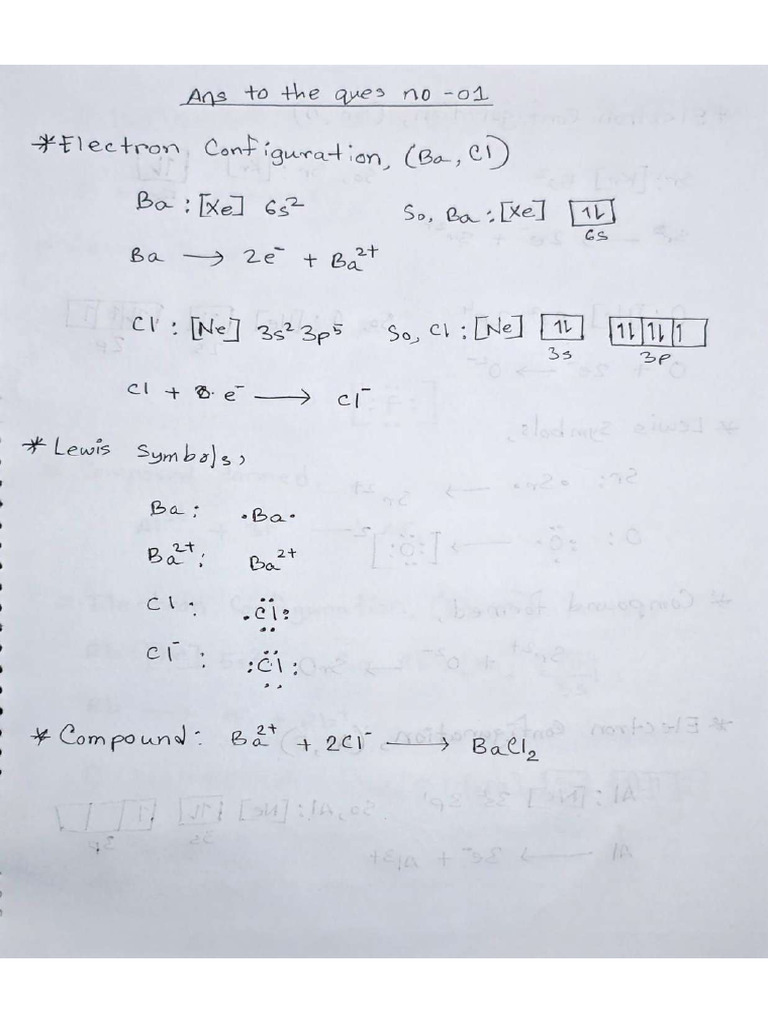 Ans to the ques no -01
*Electron Configuration, (Ba, Cl)
Ba : [Xe] 6s² So, Ba : [Xe] 1L
6s
Ba → 2e⁻ + Ba²⁺
Cl : [Ne] 3s² 3p⁵ So, Cl : [Ne] 1L 1L 1L 1
3s 3p
Cl + e⁻ → Cl⁻
* Lewis Symbols,
Ba : ·Ba·
Ba²⁺ : Ba²⁺
Cl : ·Cl:
Cl⁻ : :Cl:
* Compound : Ba²⁺ + 2Cl⁻ → BaCl₂